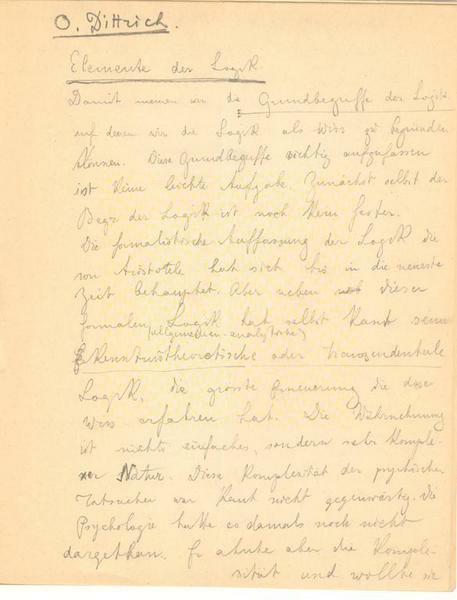 O. Dittrich.
Elemente der Logik.
Damit meinen wir die Grundbegriffe der Logik
auf denen wir die Logik als Wiss zu begründen
können. Diese Grundbegriffe richtig aufzufassen
ist keine leichte Aufgabe. Zunächst selbst der
Begr der Logik ist noch kein fester.
Die formalistische Auffassung der Logik die
von Aristotele hat sich bis in die neueste
Zeit behauptet. Aber neben dieser
formalen Logik hat selbst Kant seine
(allgemeinen analytischen)
Erkenntnistheoretische oder transzendentale
Logik, die grosste Erneuerung die diese
Wiss erfahren hat. Die Wahrnehmung
ist nichts einfaches, sondern sehr komple-
xer Natur. Diese Komplexität der psychischen
Tatsachen war Kant nicht gegenwärtig. Die
Psychologie hatte es damals noch nicht
dargethan. Er ahnte aber die Komple-
xität und wollte sie